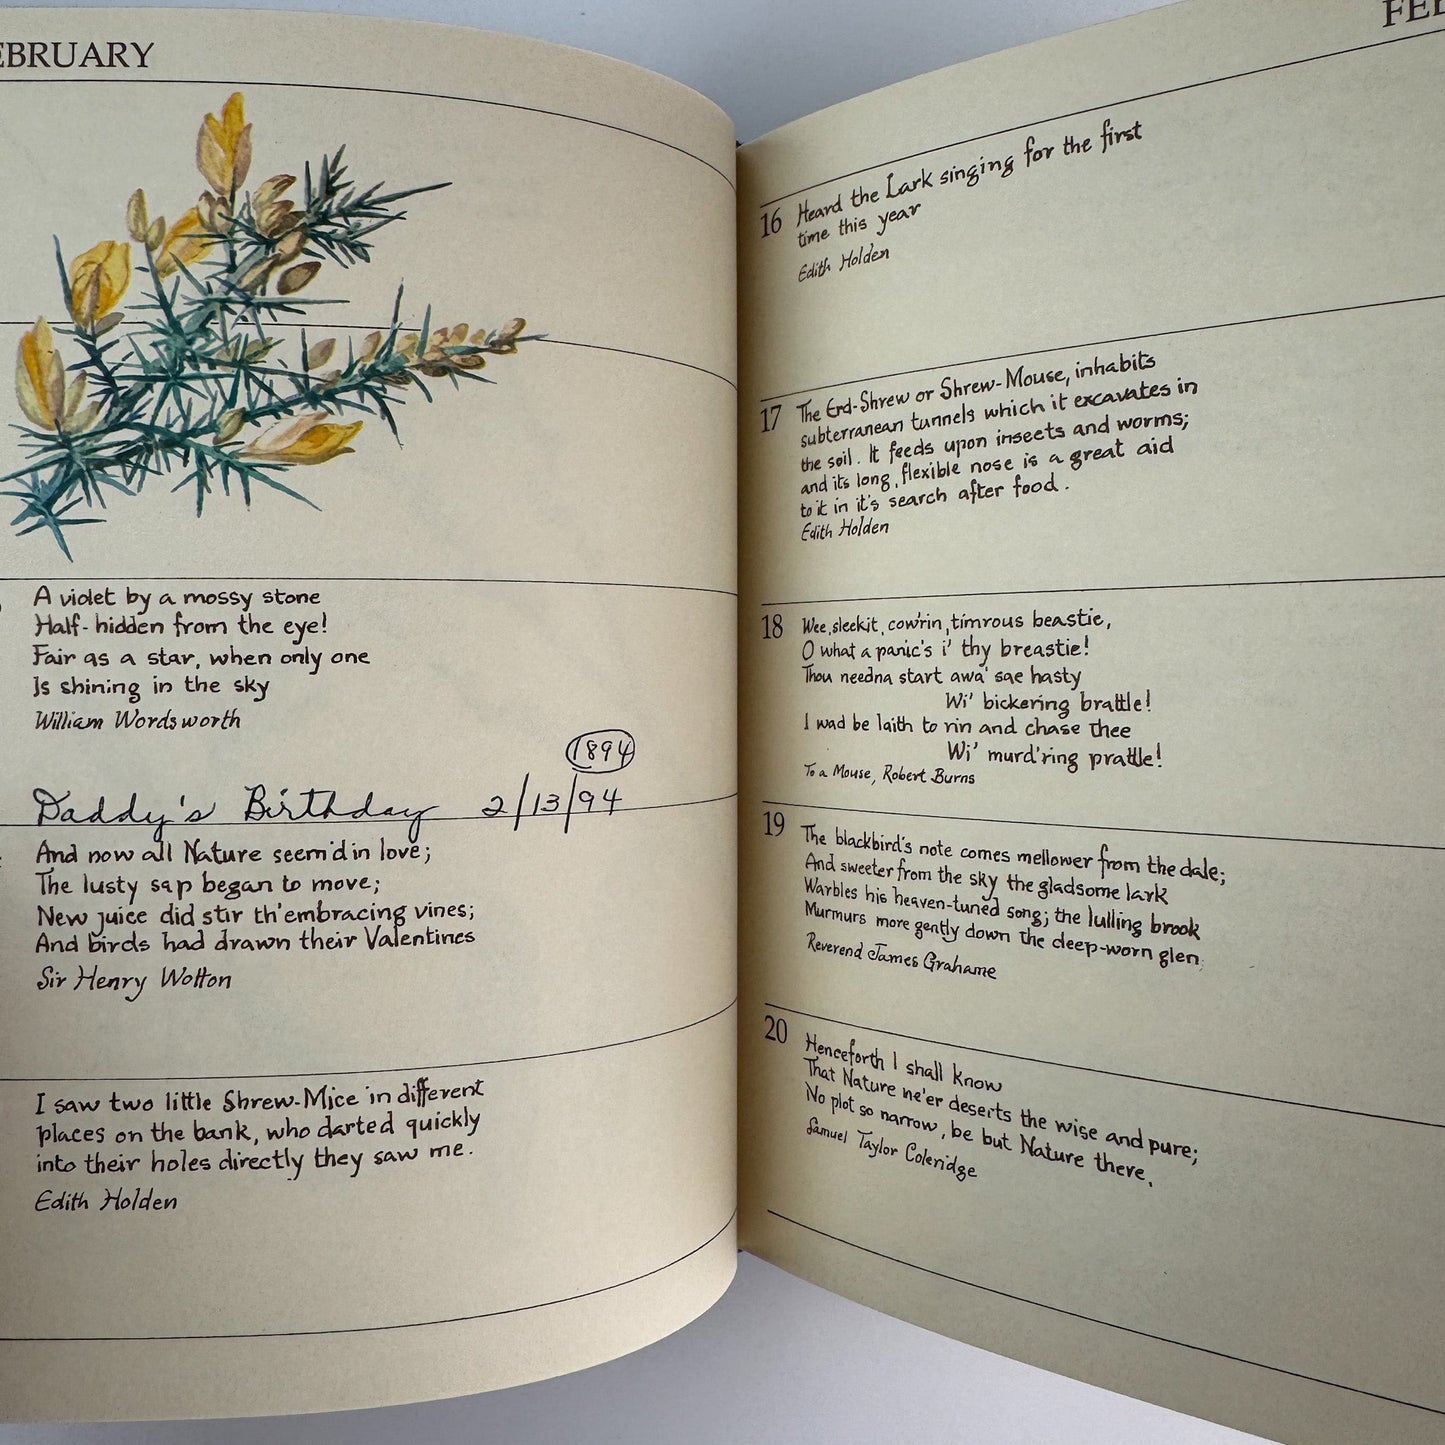 EBRUARY
A violet by a mossy stone
Half-hidden from the eye!
Fair as a star, when only one
Is shining in the sky
William Wordsworth
1894
Daddy's Birthday 2/13/94
And now all Nature seem'd in love;
The lusty sap began to move;
New juice did stir th'embracing vines;
And birds had drawn their Valentines
Sir Henry Wotton
I saw two little Shrew-Mice in different
places on the bank, who darted quickly
into their holes directly they saw me.
Edith Holden
FEB
16 Heard the Lark singing for the first
time this year
Edith Holden
17 The Erd-Shrew or Shrew-Mouse, inhabits
subterranean tunnels which it excavates in
the soil. It feeds upon insects and worms;
and its long, flexible nose is a great aid
to it in it's search after food.
Edith Holden
18 Wee, sleekit, cow'rin, timrous beastie,
O what a panic's i' thy breastie!
Thou needna start awa' sae hasty
Wi' bickering brattle!
I wad be laith to rin and chase thee
Wi' murd'ring prattle!
To a Mouse, Robert Burns
19 The blackbird's note comes mellower from the dale;
And sweeter from the sky the gladsome lark
Warbles his heaven-tuned song; the lulling brook
Murmurs more gently down the deep-worn glen
Reverend James Grahame
20 Henceforth I shall know
That Nature ne'er deserts the wise and pure;
No plot so narrow, be but Nature there.
Samuel Taylor Coleridge